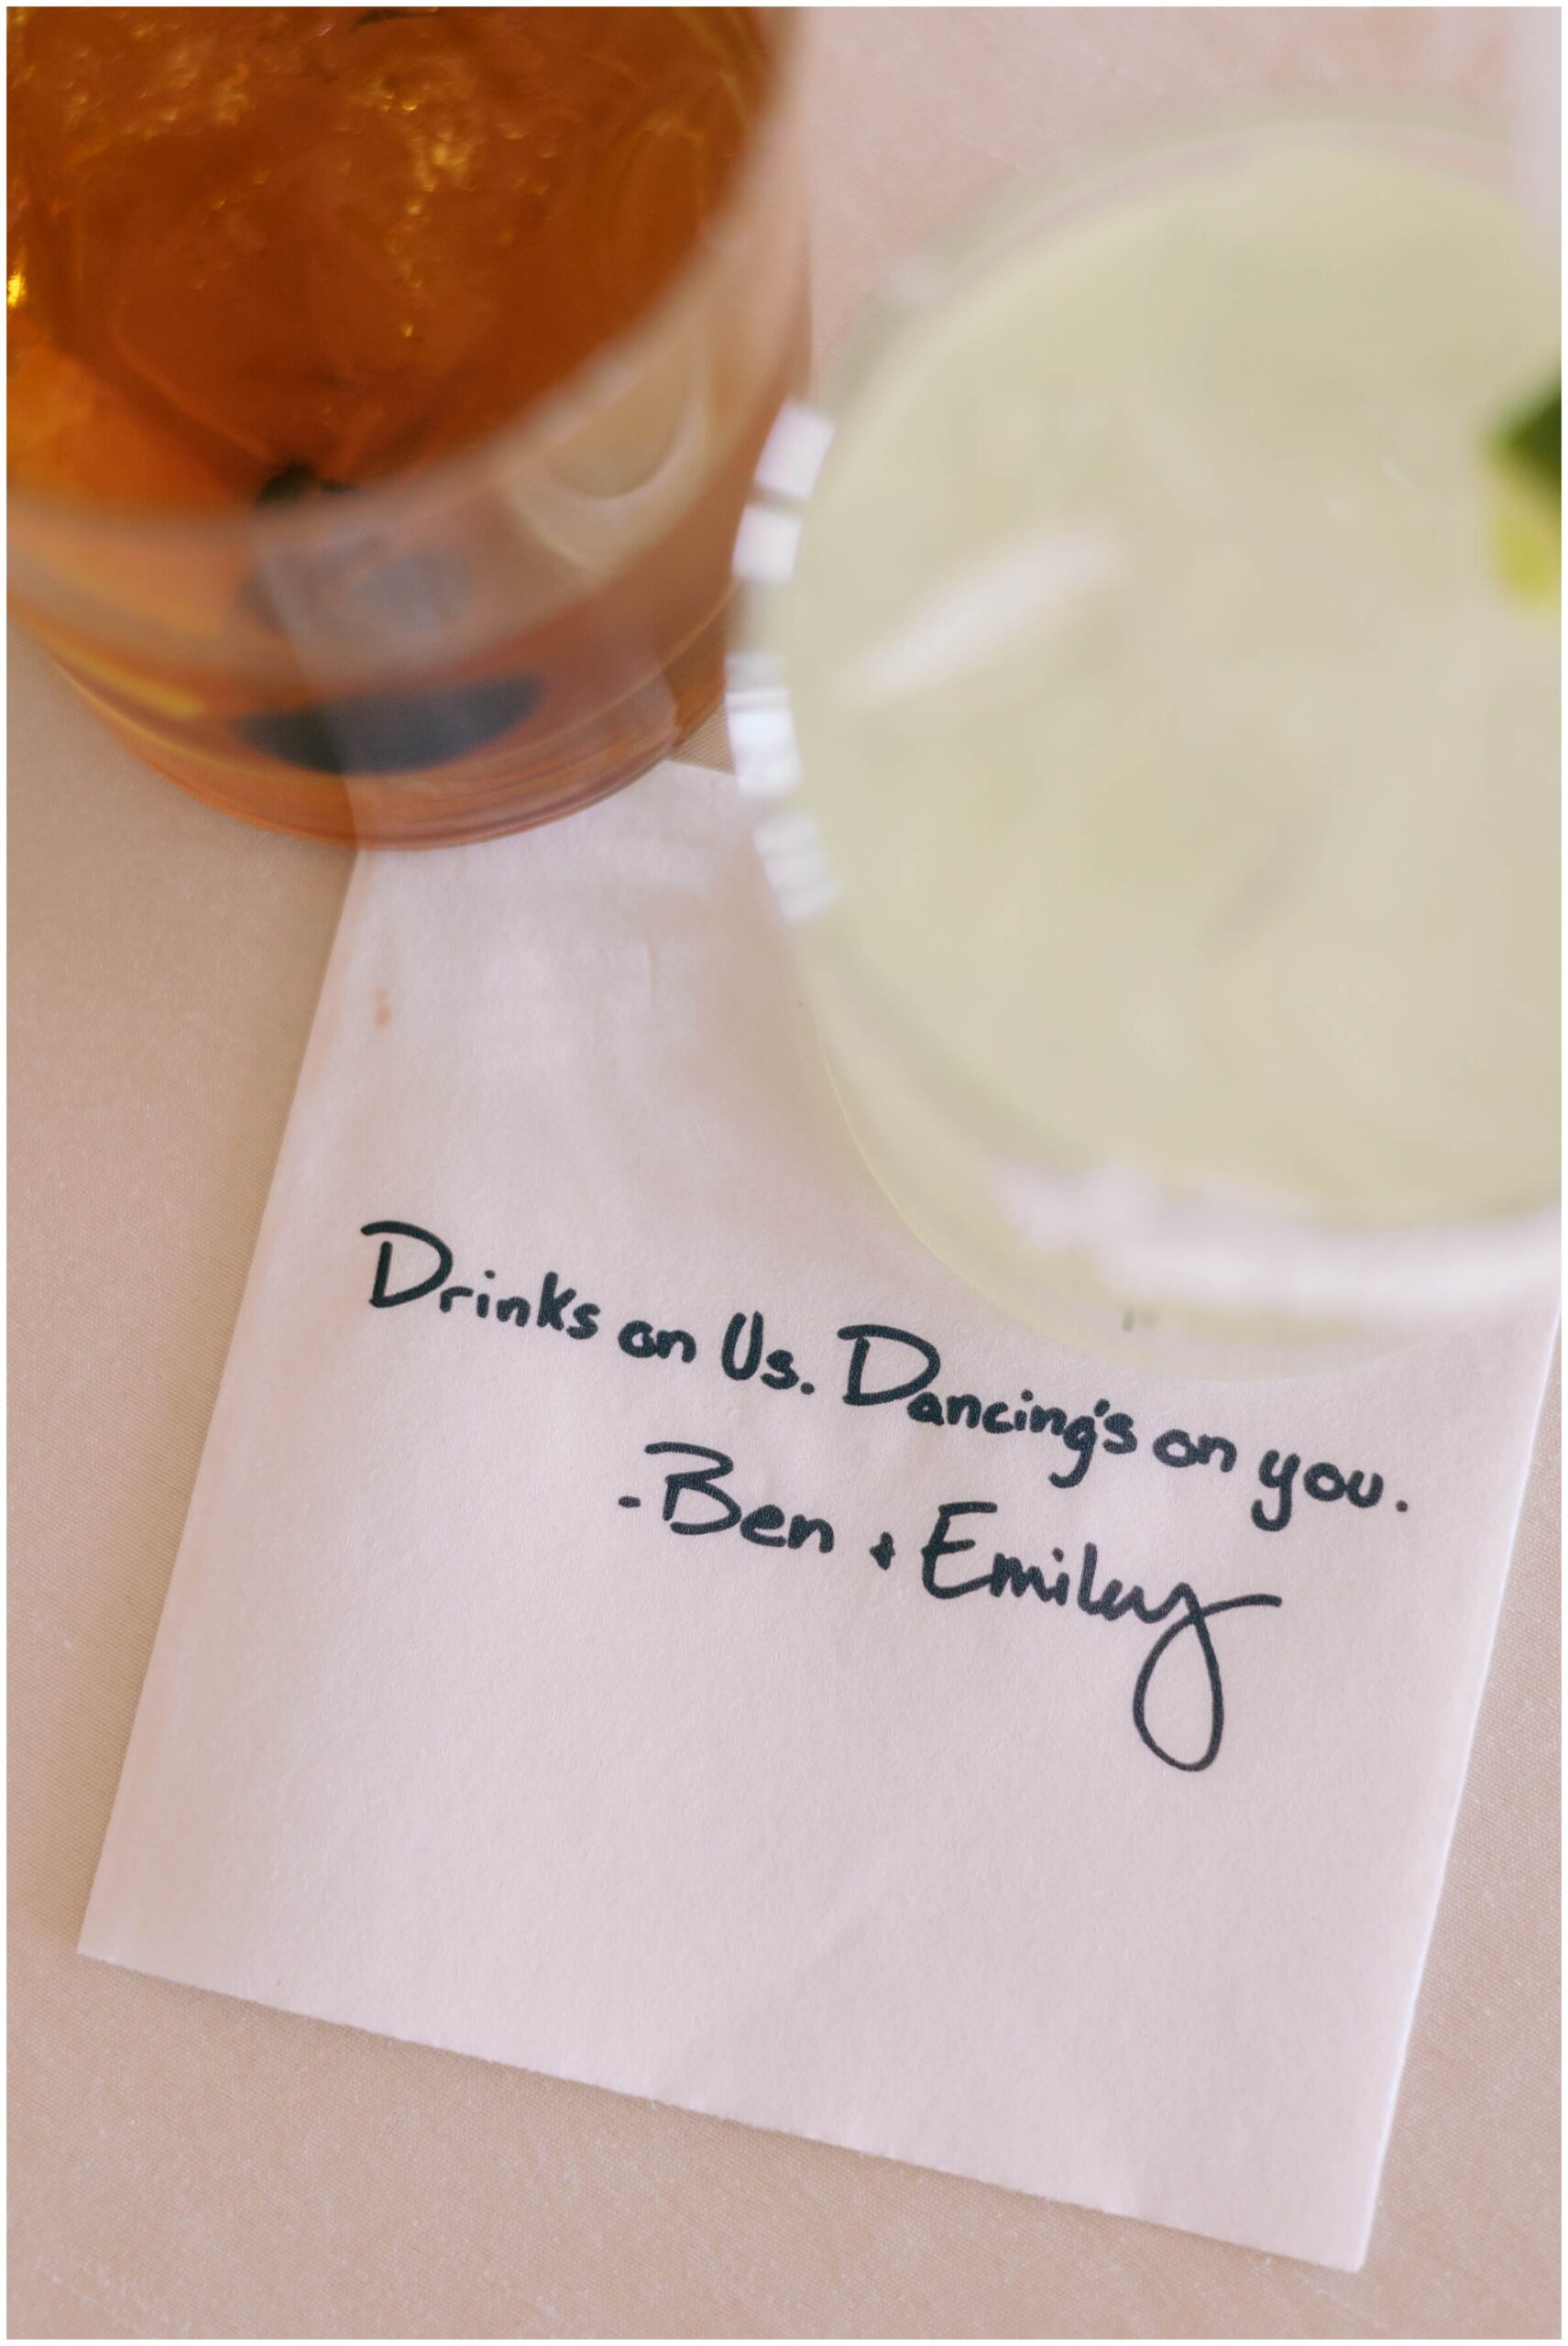 Drinks on Us. Dancing's on you.
-Ben + Emiley